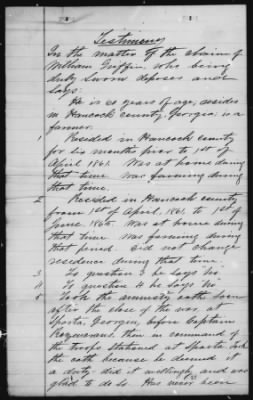 Testimony
In the matter of the claim of
William Griffin, who being
duly sworn deposes and
says:
He is 60 years of age, resides
in Hancock county, Georgia, is a
farmer.
1 Resided in Hancock county
for six months prior to 1st of
April 1861. Was at home during
that time. Was farming during
that time.
2 Resided in Hancock county
from 1st of April, 1861, to 1st of
June 1865. Was at home during
that time. Was farming during
that period. Did not change
residence during that time.
3 To question 3 he says no.
4 To question 4 he says no.
5 Took the amnesty oath soon
after the close of the war, at
Sparta, Georgia, before Captain
then in command of
the troops stationed at Sparta. Took
the oath because he deemed it
a duty; did it willingly, and was
glad to do so. Has never been